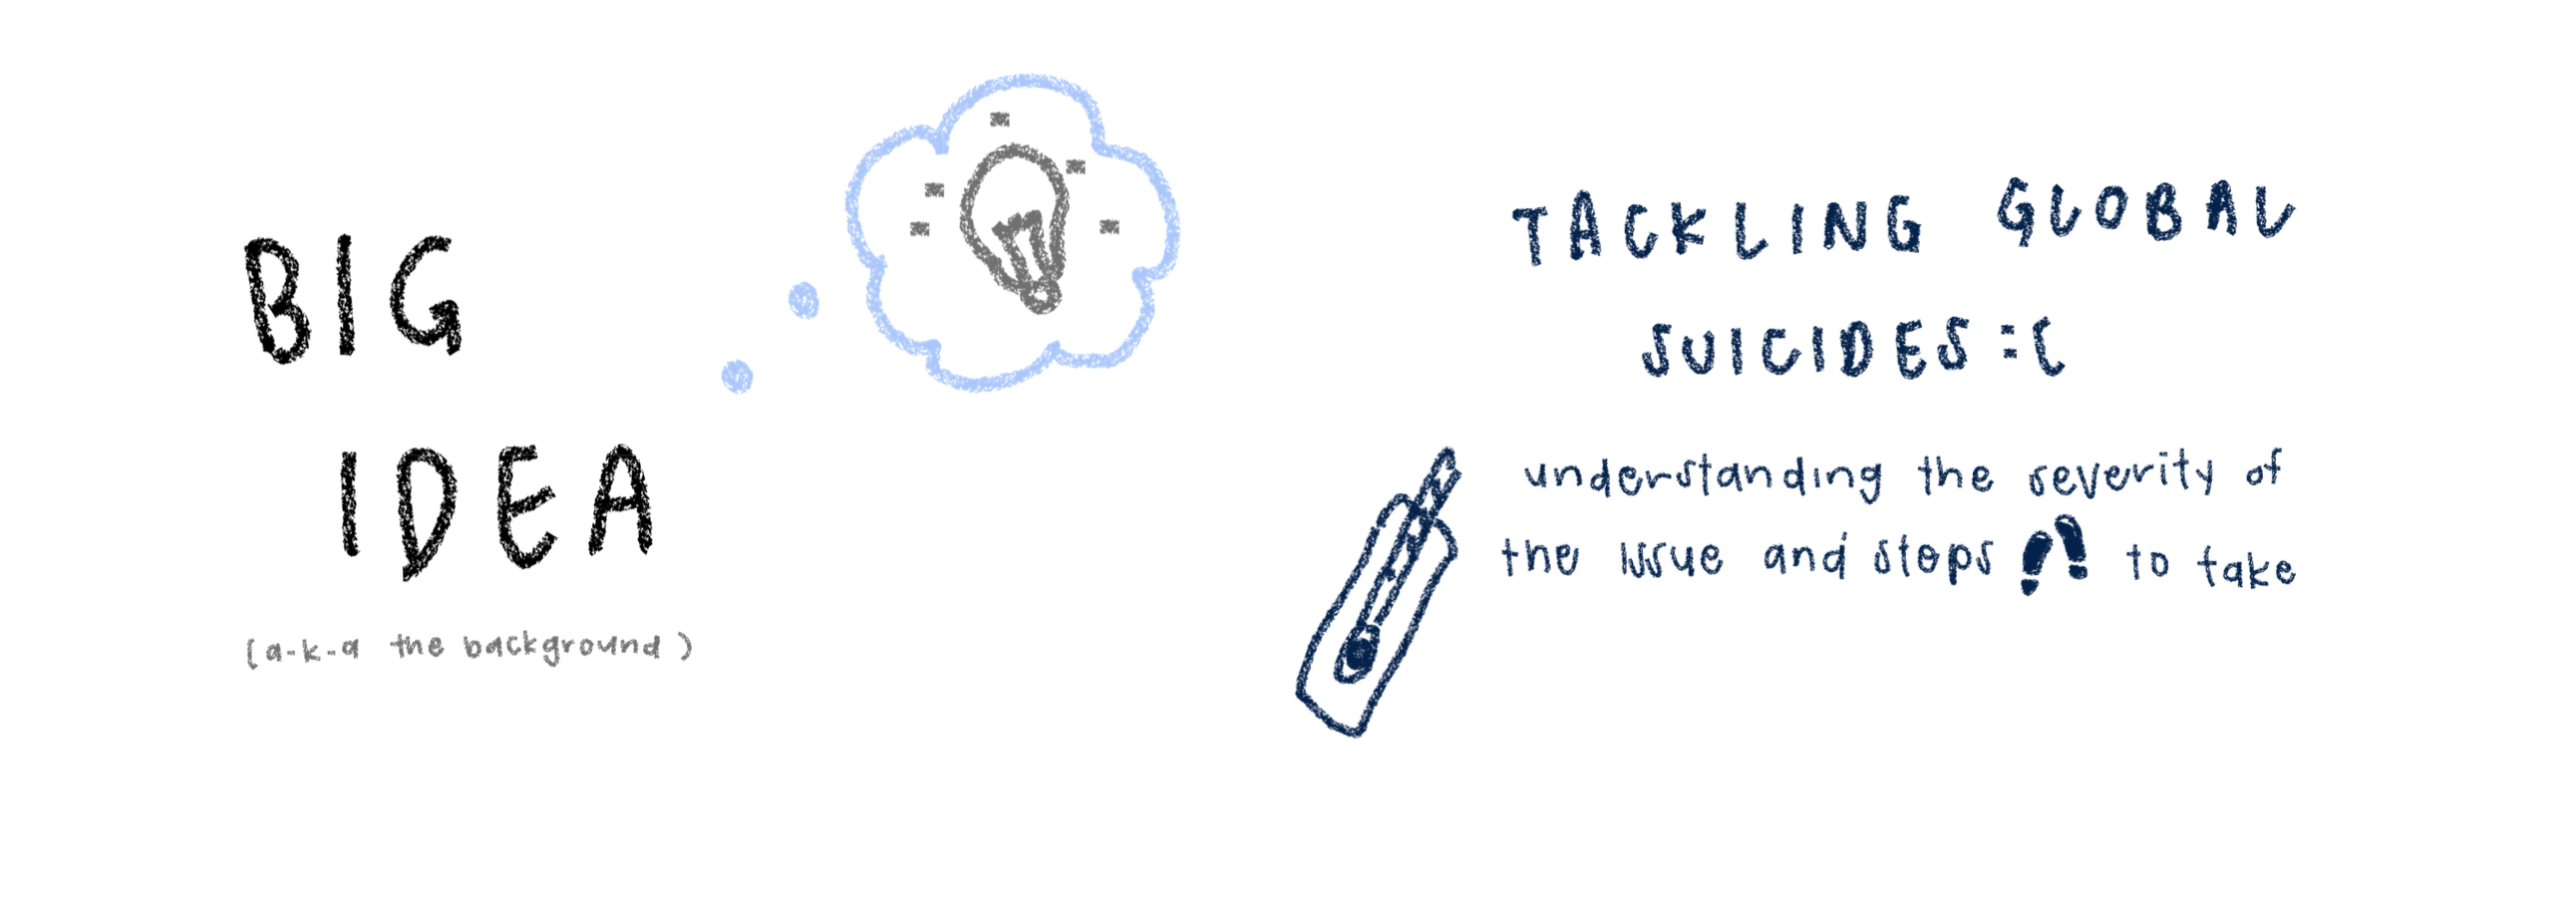 BIG
IDEA
(a-k-a the background)
TACKLING GLOBAL
SUICIDES :(
understanding the severity of
the issue and steps to take